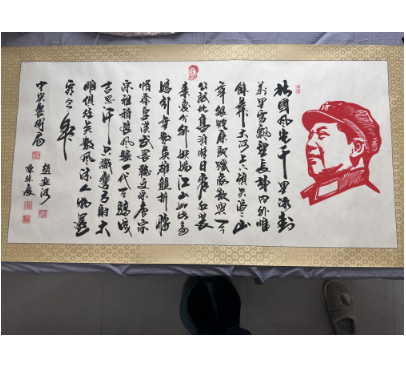 北國风光千里冰封
万里雪飘望长城内外惟
馀莽莽大河上下顿失滔滔山
舞银蛇原驰蜡象欲与天
公试比高须晴日看红装
素裹分外妖娆江山如此多
娇引无数英雄竞折腰
惜秦皇汉武略输文采唐宗
宋祖稍逊风骚一代天骄成
吉思汗只识弯弓射大
雕俱往矣数风流人物还
看今朝